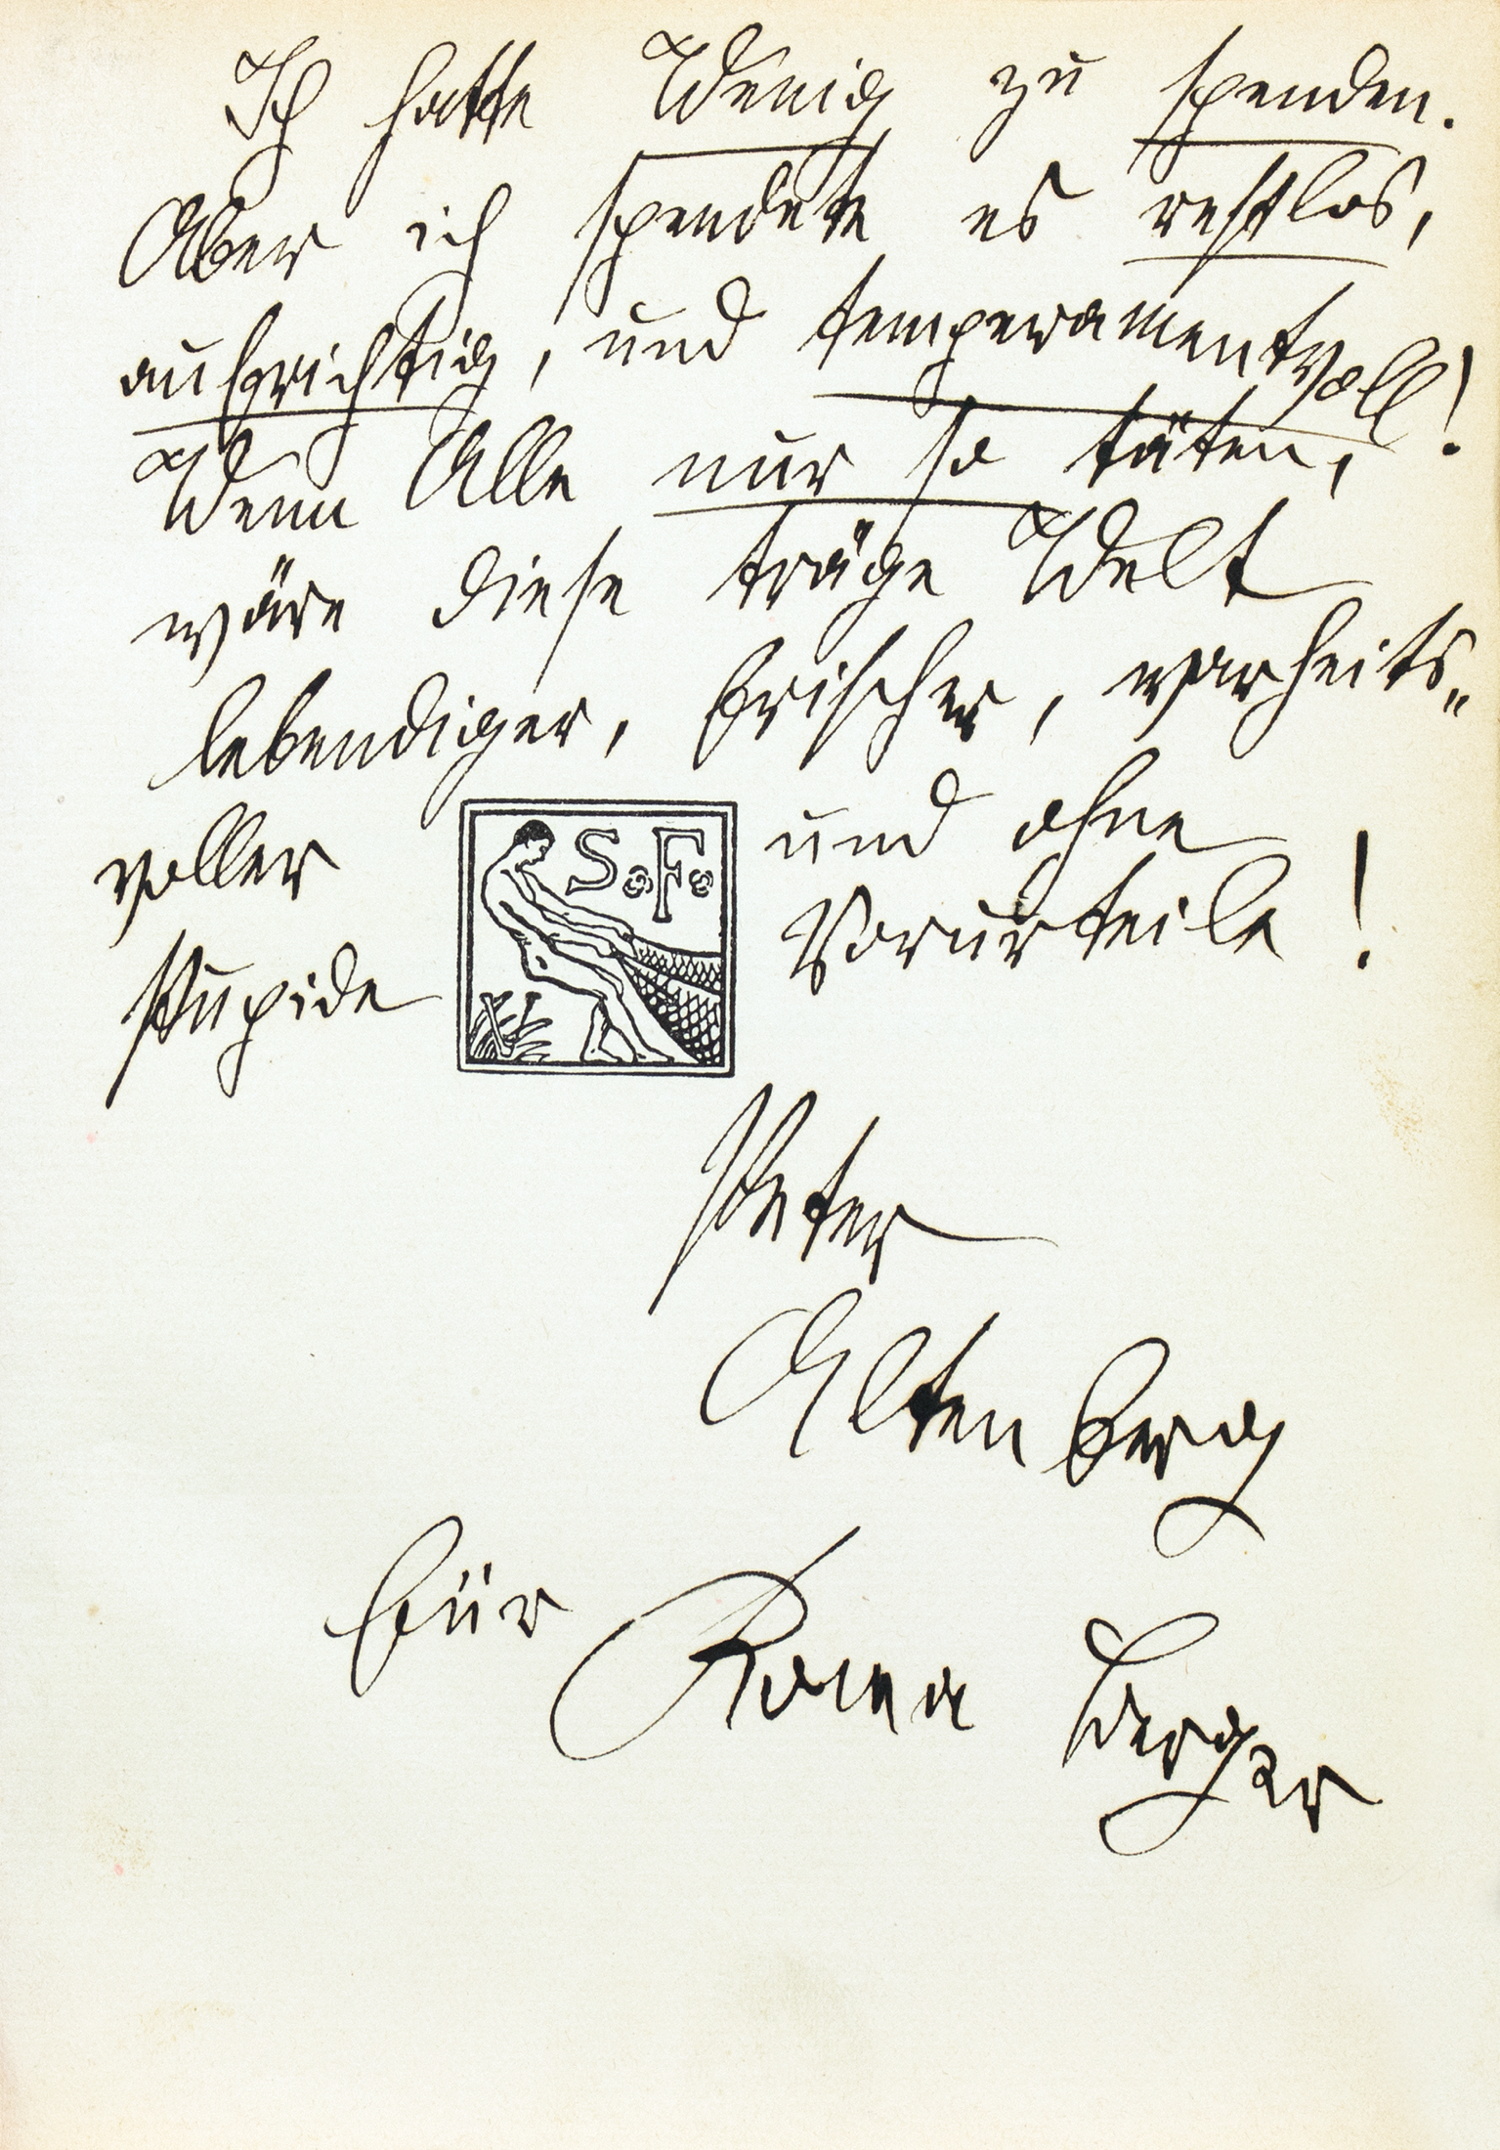 Ich hatte Wenig zu spenden.
Aber ich spendete es restlos,
aufrichtig, und temperamentvoll!
Wenn Alle nur so täten,
wäre diese träge Welt
lebendiger, frischer, warheits„
voller und ohne
stupide Vorurteile!
S. F.
Peter
Altenberg
für Roma Berger